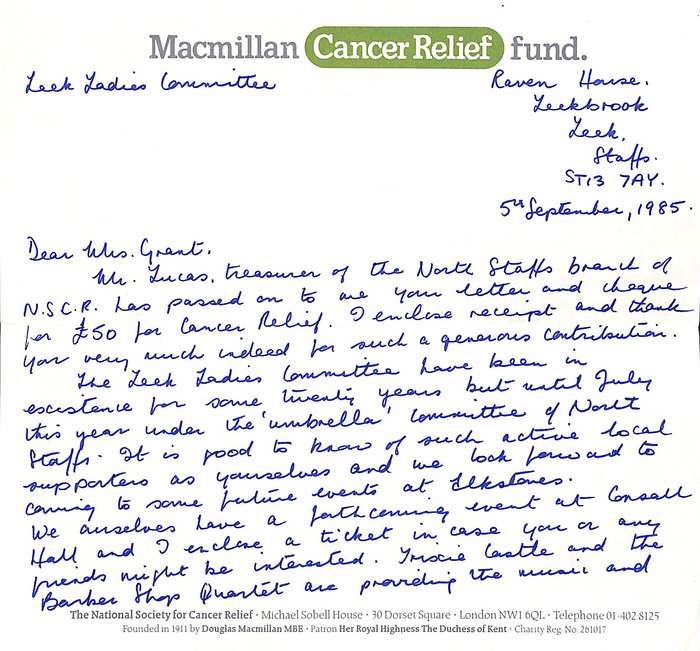 Macmillan Cancer Relief fund.
Leek Ladies Committee
Raven House.
Leekbrook
Leek,
Staffs.
ST13 7AY.
5th September, 1985.
Dear Mrs. Grant.
Mr. Lucas, treasurer of the North Staffs branch of
N.S.C.R. has passed on to me your letter and cheque
for £50 for Cancer Relief. I enclose receipt and thank
you very much indeed for such a generous contribution.
The Leek Ladies Committee have been in
escistence for some twenty years but until July
this year under the 'umbrella' Committee of North
Staffs. It is good to know of such active local
supporters as yourselves and we look forward to
coming to some future events at Elkstones.
We ourselves have a forthcoming event at Consall
Hall and I enclose a ticket in case you or any
friends might be interested. Trixie Castle and the
Barber Shop Quartet are providing the music and
The National Society for Cancer Relief · Michael Sobell House · 30 Dorset Square · London NW1 6QL · Telephone 01-402 8125
Founded in 1911 by Douglas Macmillan MBE · Patron Her Royal Highness The Duchess of Kent · Charity Reg. No. 261017